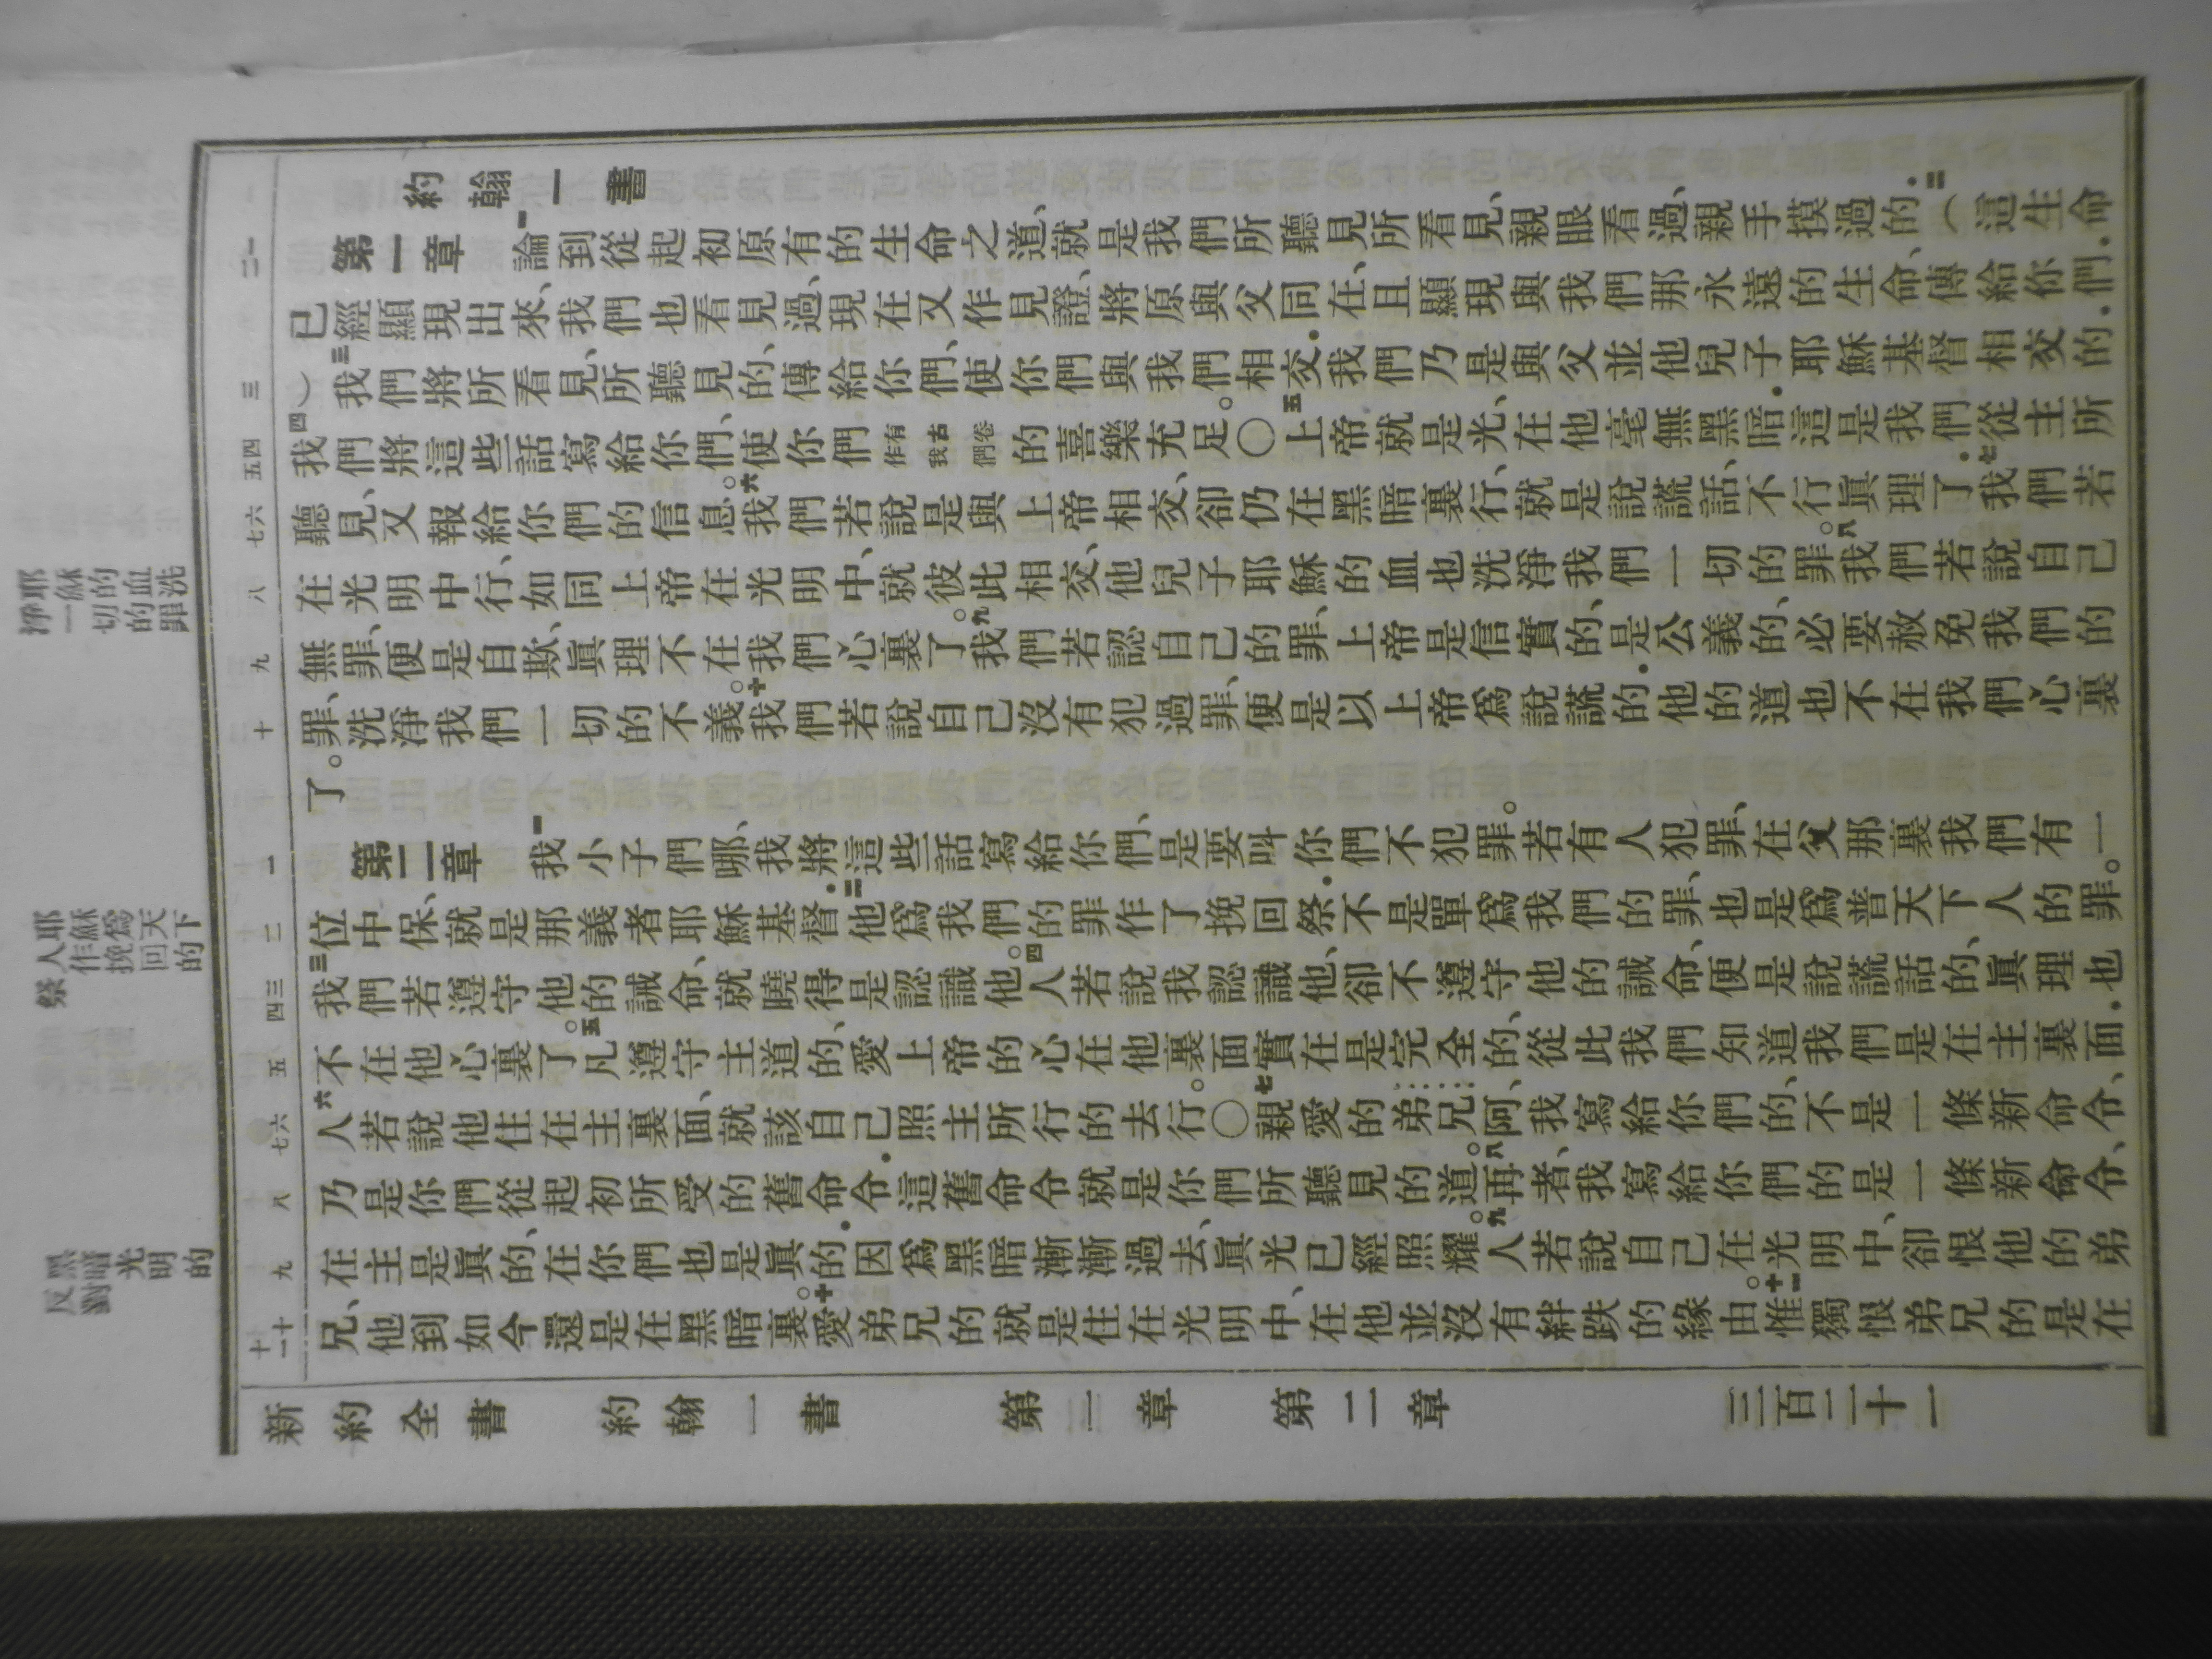 約翰一書
第一章 一論到從起初原有的生命之道、就是我們所聽見所看見、親眼看過、親手摸過的．二（這生命
已經顯現出來、我們也看見過、現在又作見證、將原與父同在、且顯現與我們那永遠的生命、傳給你們．
）三我們將所看見、所聽見的、傳給你們、使你們與我們相交．我們乃是與父並他兒子耶穌基督相交的．
四我們將這些話寫給你們、使你們有古卷作我們的喜樂充足。〇五上帝就是光、在他毫無黑暗．這是我們從主所
聽見、又報給你們的信息。六我們若說是與上帝相交、卻仍在黑暗裏行、就是說謊話、不行眞理了．七我們若
在光明中行、如同上帝在光明中、就彼此相交、他兒子耶穌的血也洗淨我們一切的罪。八我們若說自己
無罪、便是自欺、眞理不在我們心裏了。九我們若認自己的罪、上帝是信實的、是公義的、必要赦免我們的
罪、洗淨我們一切的不義。十我們若說自己沒有犯過罪、便是以上帝爲說謊的．他的道也不在我們心裏
了。
第二章 一我小子們哪、我將這些話寫給你們、是要叫你們不犯罪。若有人犯罪、在父那裏我們有一
位中保、就是那義者耶穌基督．二他爲我們的罪作了挽回祭．不是單爲我們的罪、也是爲普天下人的罪。
三我們若遵守他的誡命、就曉得是認識他。四人若說我認識他、卻不遵守他的誡命、便是說謊話的、眞理也
不在他心裏了。五凡遵守主道的、愛上帝的心在他裏面實在是完全的、從此我們知道我們是在主裏面．
六人若說他住在主裏面、就該自己照主所行的去行。〇七親愛的弟兄阿、我寫給你們的、不是一條新命令、
乃是你們從起初所受的舊命令．這舊命令就是你們所聽見的道。八再者、我寫給你們的是一條新命令、
在主是眞的、在你們也是眞的．因爲黑暗漸漸過去、眞光已經照耀。九人若說自己在光明中、卻恨他的弟
兄、他到如今還是在黑暗裏。十愛弟兄的就是住在光明中、在他並沒有絆跌的緣由。十一惟獨恨弟兄的是在
新約全書 約翰一書 第一章 第二章 三百二十一
耶穌的血洗
淨一切的罪
耶穌爲天下
人作挽回的
祭
黑暗光明的
反
一二
三
四五
六七
八
九
十
一
二
三四
五
六七
八
九
十十一